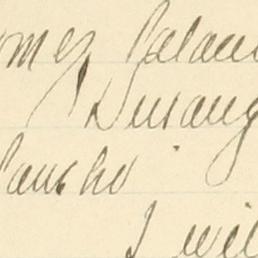 omez Palac
Durang
Pancho
I wil